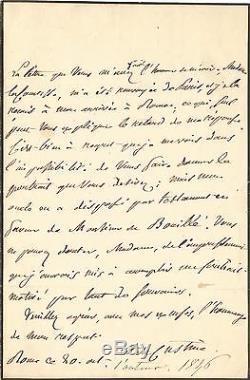 La lettre que vous m'avez fait l'honneur de m'écrire, Madame
la Comtesse, m'a été renvoyée de Paris, et je l'ai
à mon arrivée à Rome, ce qui, seul,
peut vous expliquer le retard de ma réponse.
C'est bien à regret que je me vois dans
l'impossibilité de vous faire donner le
portrait que vous desirez; mais mon
oncle en a disposé par testament en
faveur de Monsieur de Bouillé. Vous
ne pouvez douter, Madame, de l'empressement
que j'aurais mis à accomplir un souhait
motivé par tant de souvenirs.
Veuillez agréer, avec mes excuses, l'hommage
de mon respect.
Custine
Rome ce 20 oct. 1846